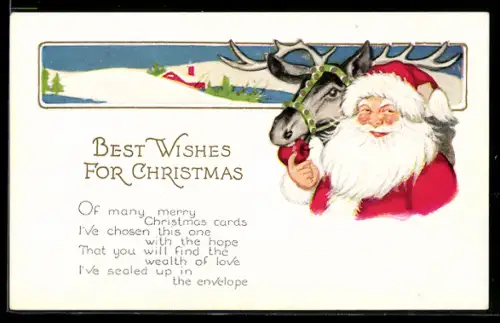 BEST WISHES
FOR CHRISTMAS
Of many merry
Christmas cards
I've chosen this one
with the hope
That you will find the
wealth of love
I've sealed up in
the envelope